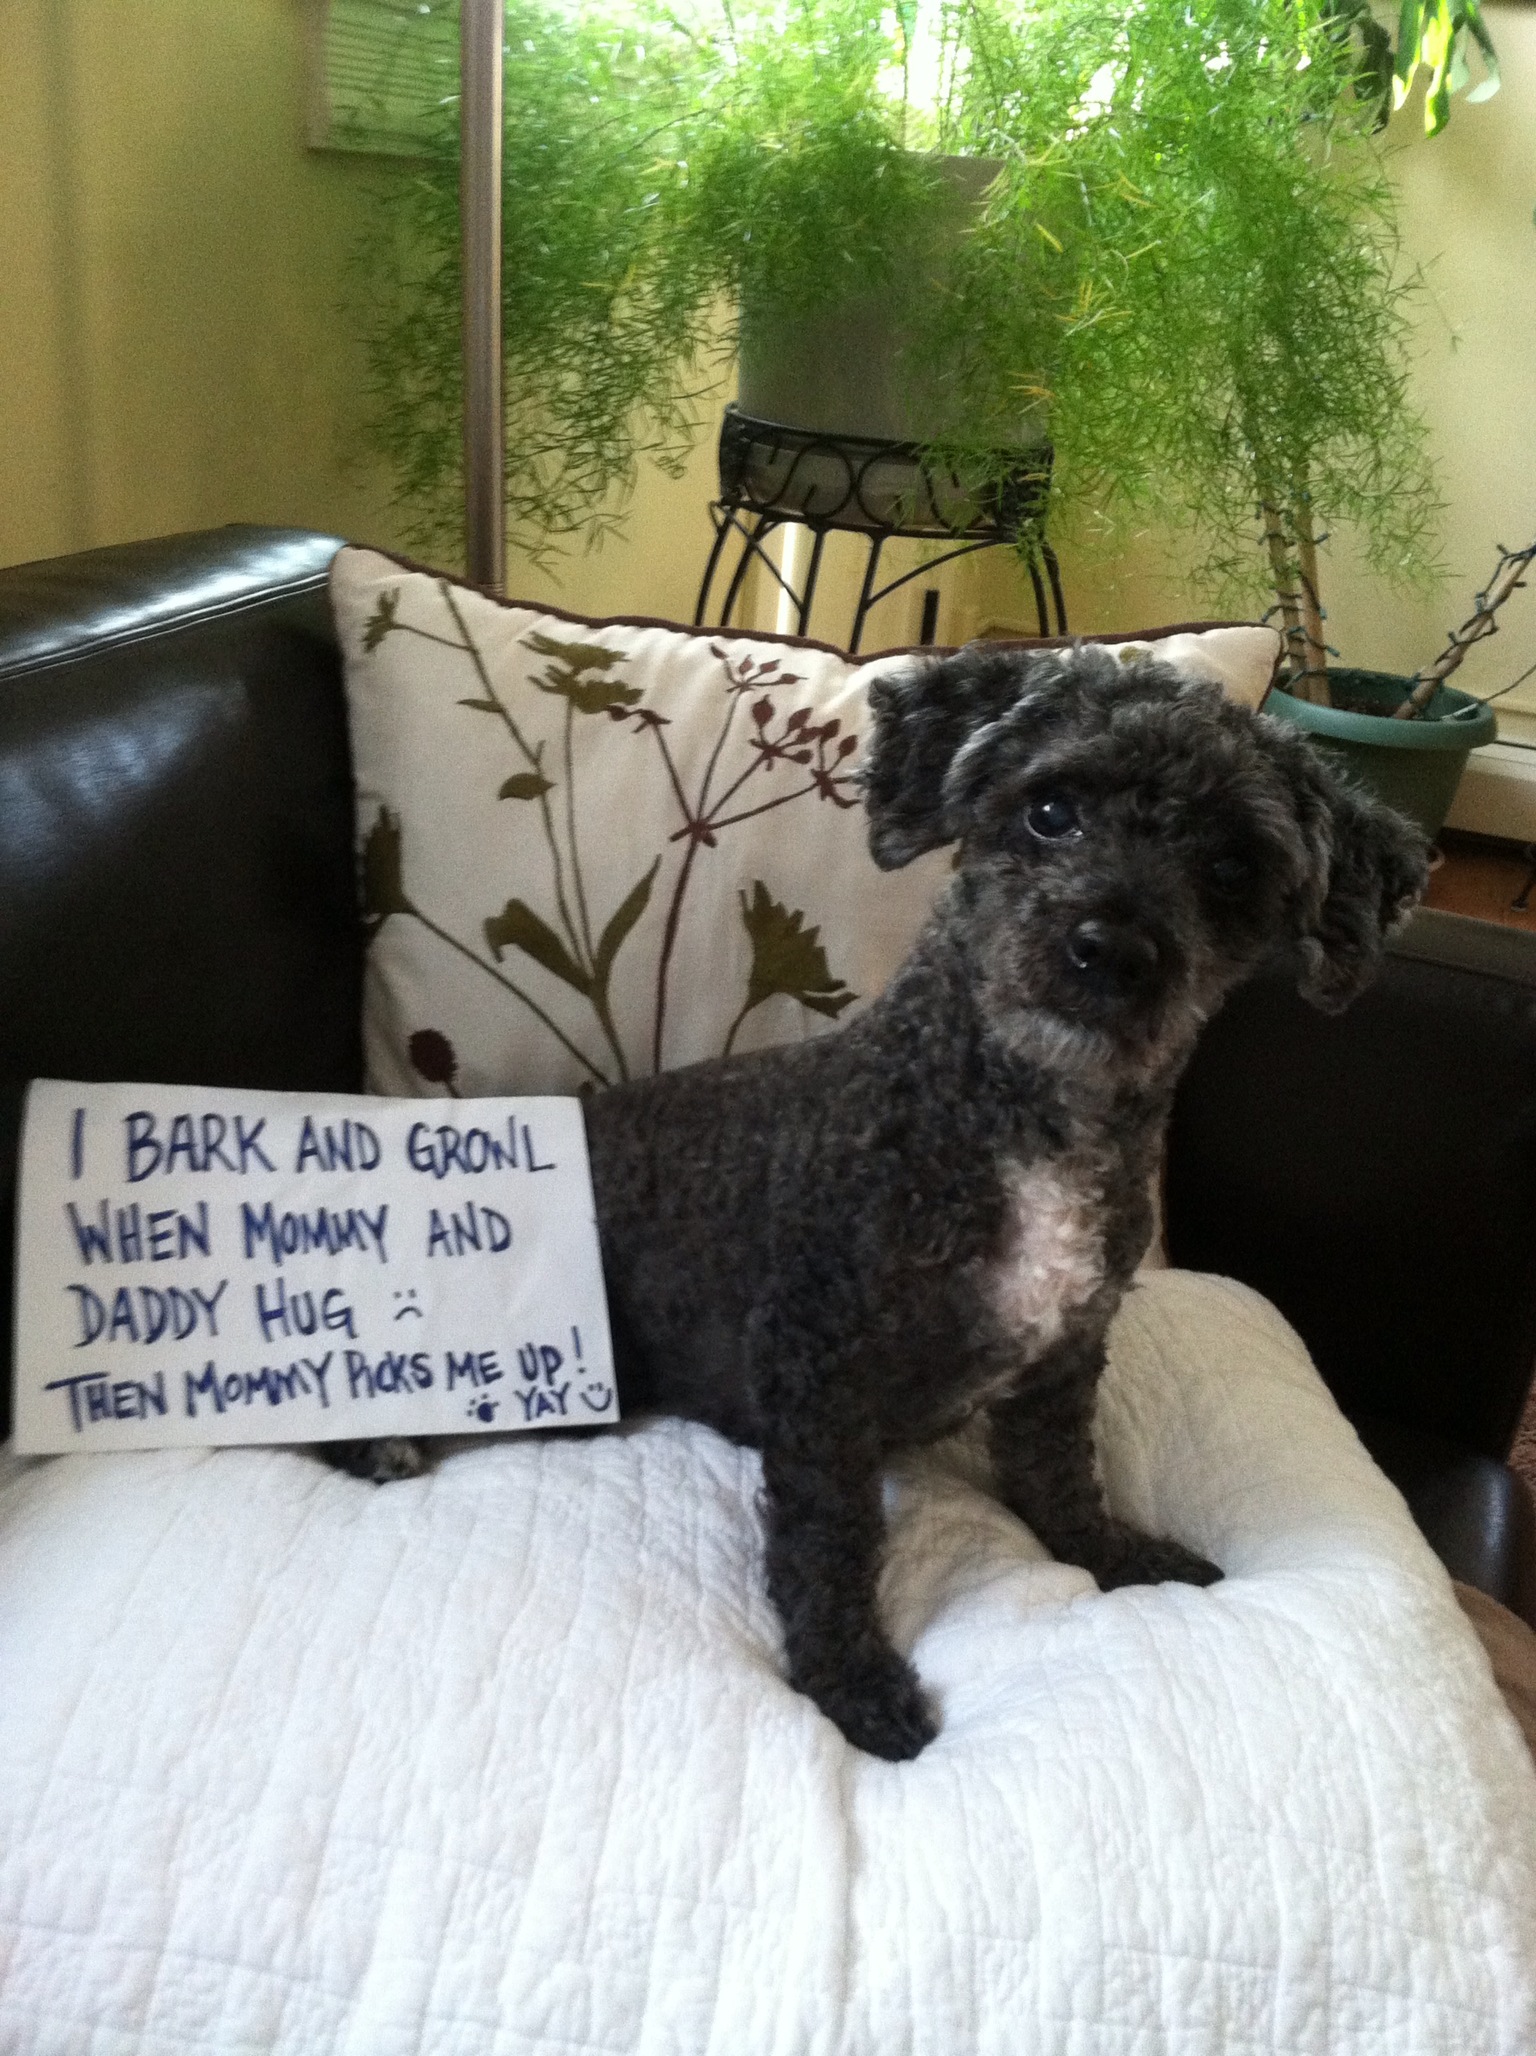 I BARK AND GROWL
WHEN MOMMY AND
DADDY HUG :(
THEN MOMMY PICKS ME UP!
YAY :)